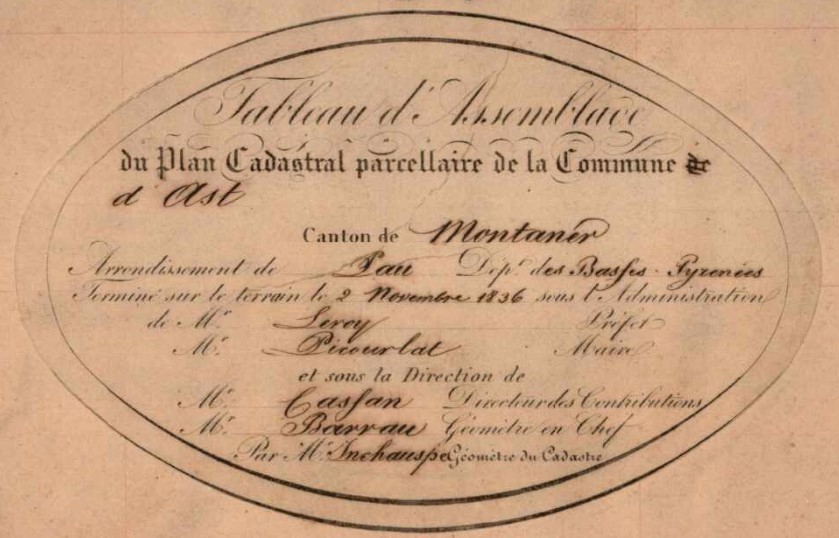 Tableau d'Assemblage
du Plan Cadastral parcellaire de la Commune de
d'Ast
Canton de Montaner
Arrondissement de Pau Dépt. des Basses-Pyrenées
Terminé sur le terrain le 2 Novembre 1836 sous l'Administration
de Mr. Leroy Préfet
Mr. Picourlat Maire
et sous la Direction de
Mr. Cassan Directeur des Contributions
Mr. Barrau Géomètre en Chef
Par Mr. Inchauspe Géomètre du Cadastre